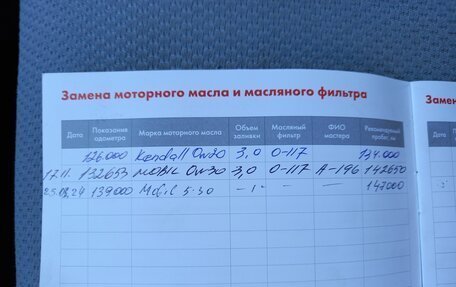 Замена моторного масла и масляного фильтра
Замен
Дата Показания одометра Марка моторного масла Объем заливки Масляный фильтр ФИО мастера Рекомендуемый пробег, км
Дата
126.000 Kendall 0w30 3,0 0-117 134.000
17.11. 132653 MOBIL 0w30 3,0 0-117 A-196 142650
139000 Mobil 5-30 -1- — — 147000